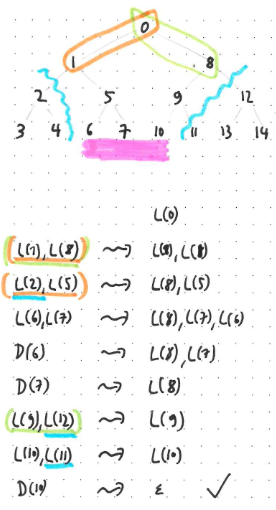 0
1 8
2 5 9 12
3 4 6 7 10 11 13 14
L(0)
(L(1), L(8)) ⇝ L(8), L(1)
(L(2), L(5)) ⇝ L(8), L(5)
L(6), L(7) ⇝ L(8), L(7), L(6)
D(6) ⇝ L(8), L(7)
D(7) ⇝ L(8)
(L(9), L(12)) ⇝ L(9)
L(10), L(11) ⇝ L(10)
D(10) ⇝ ε ✓